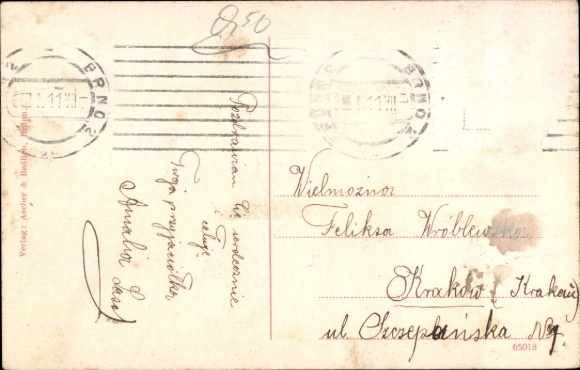 850
BRNO 2
BRNO 2
Pozdrawiam Cię serdecznie
i
całuję
Twoja przyjaciółka
Amalia
Wielmożna
Feliksa Wróblewska
Kraków (Krakau)
ul. Szczepańska No 7.
65018
Verlag: Ascher & Redlich, Brünn.